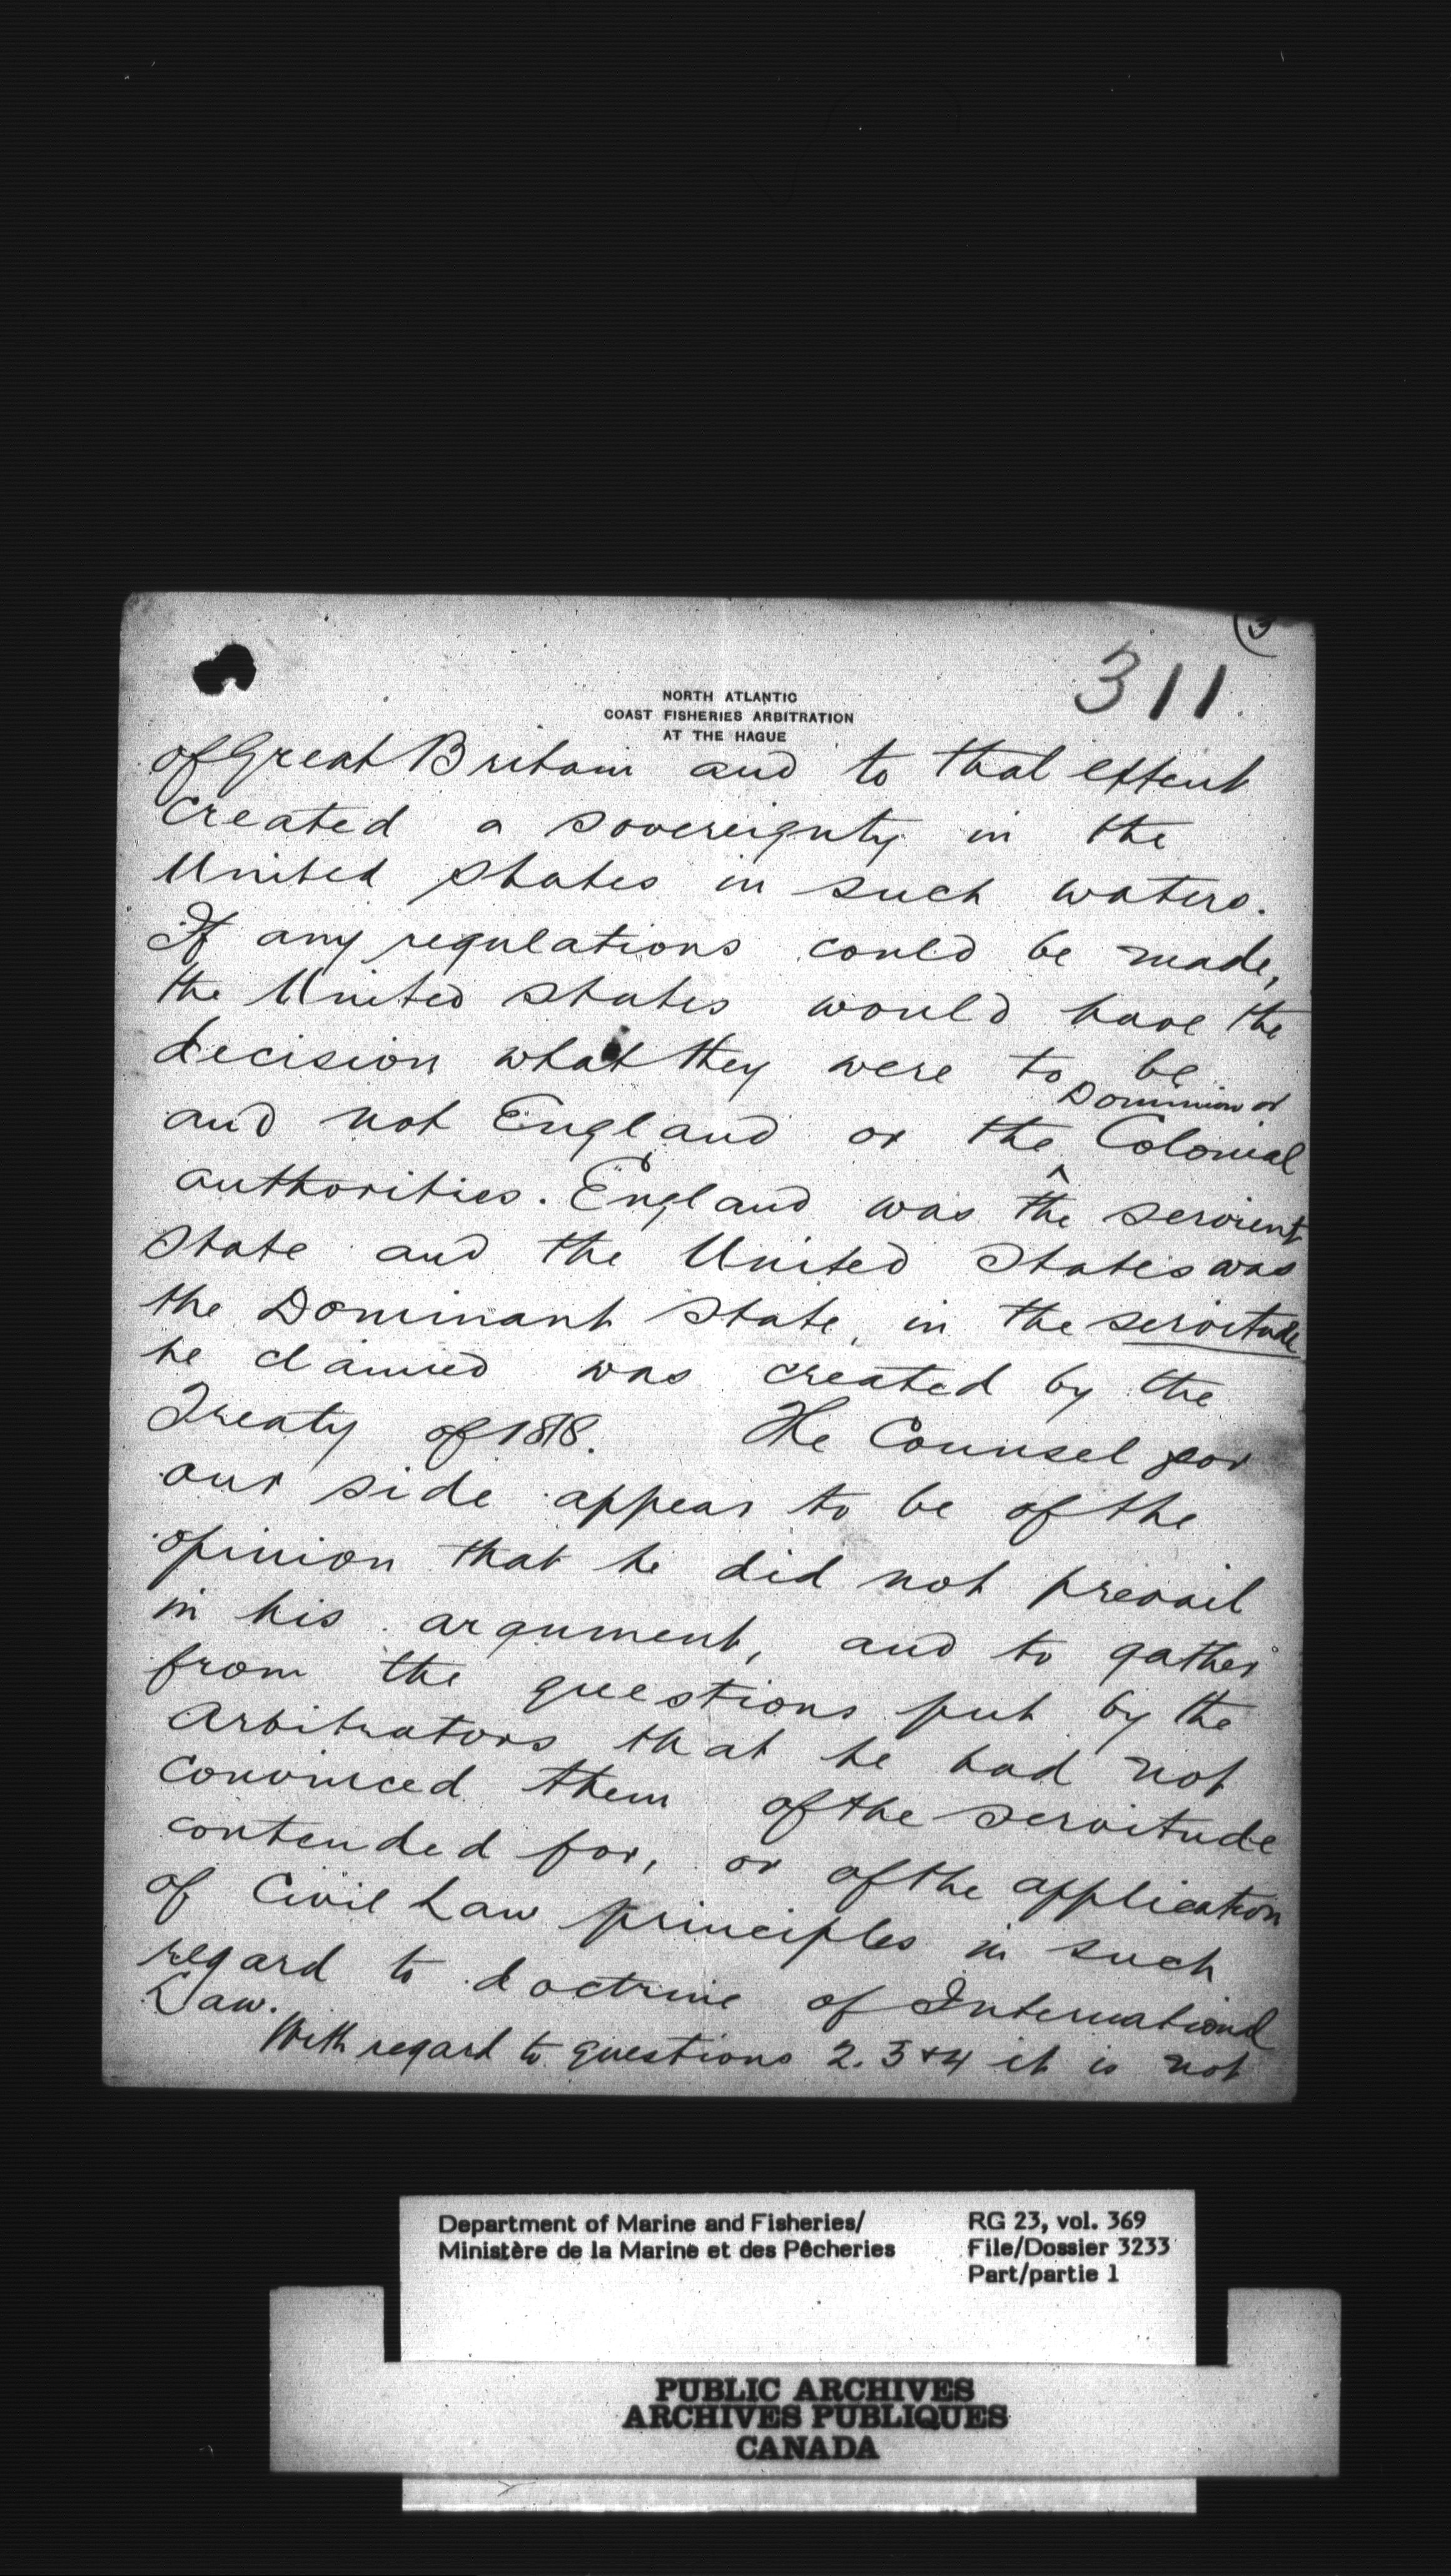 (3
311.
NORTH ATLANTIC
COAST FISHERIES ARBITRATION
AT THE HAGUE
of Great Britain and to that extent
created a sovereignty in the
United States in such waters.
If any regulations could be made,
the United States would have the
decision what they were to be
Dominion or
and not England or the ^ Colonial
authorities. England was the servient
State and the United States was
the Dominant State, in the servitude
he claimed was created by the
Treaty of 1818. The Counsel for
our side appear to be of the
opinion that he did not prevail
in his argument, and to gather
from the questions put by the
Arbitrators that he had not
convinced them of the servitude
contended for, or of the application
of Civil Law principles in such
regard to doctrine of International
Law.
With regard to questions 2. 3 & 4 it is not
Department of Marine and Fisheries/
Ministère de la Marine et des Pêcheries
RG 23, vol. 369
File/Dossier 3233
Part/partie 1
PUBLIC ARCHIVES
ARCHIVES PUBLIQUES
CANADA